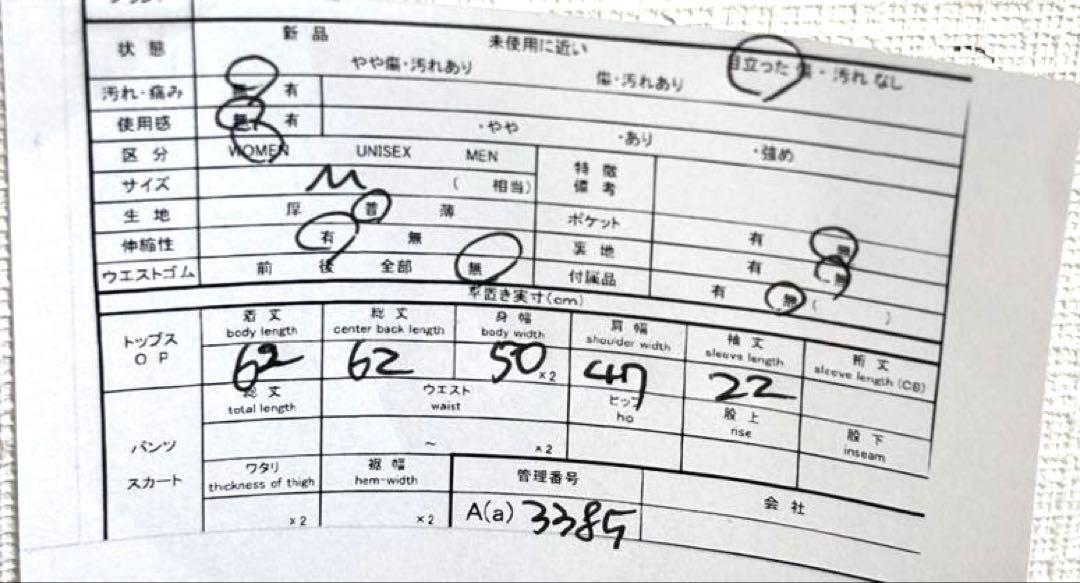 状態 新品 未使用に近い 目立った傷・汚れなし
やや傷・汚れあり 傷・汚れあり
汚れ・痛み 無 有
使用感 無 有 ・やや ・あり ・強め
区分 WOMEN UNISEX MEN 特徴 備考
サイズ M ( 相当)
生地 厚 普 薄 ポケット 有 無
伸縮性 有 無 裏地 有 無
ウエストゴム 前 後 全部 無 付属品 有 無 ( )
平置き実寸(cm)
トップス OP 着丈 総丈 身幅 肩幅 袖丈 裄丈
body length center back length body width shoulder width sleeve length sleeve length (CB)
62 62 50 ×2 47 22
パンツ スカート 総丈 ウエスト ヒップ 股上 股下
total length waist rise inseam
~ ×2
ワタリ 裾幅 管理番号 会社
thickness of thigh hem-width
×2 ×2 A(a) 3385